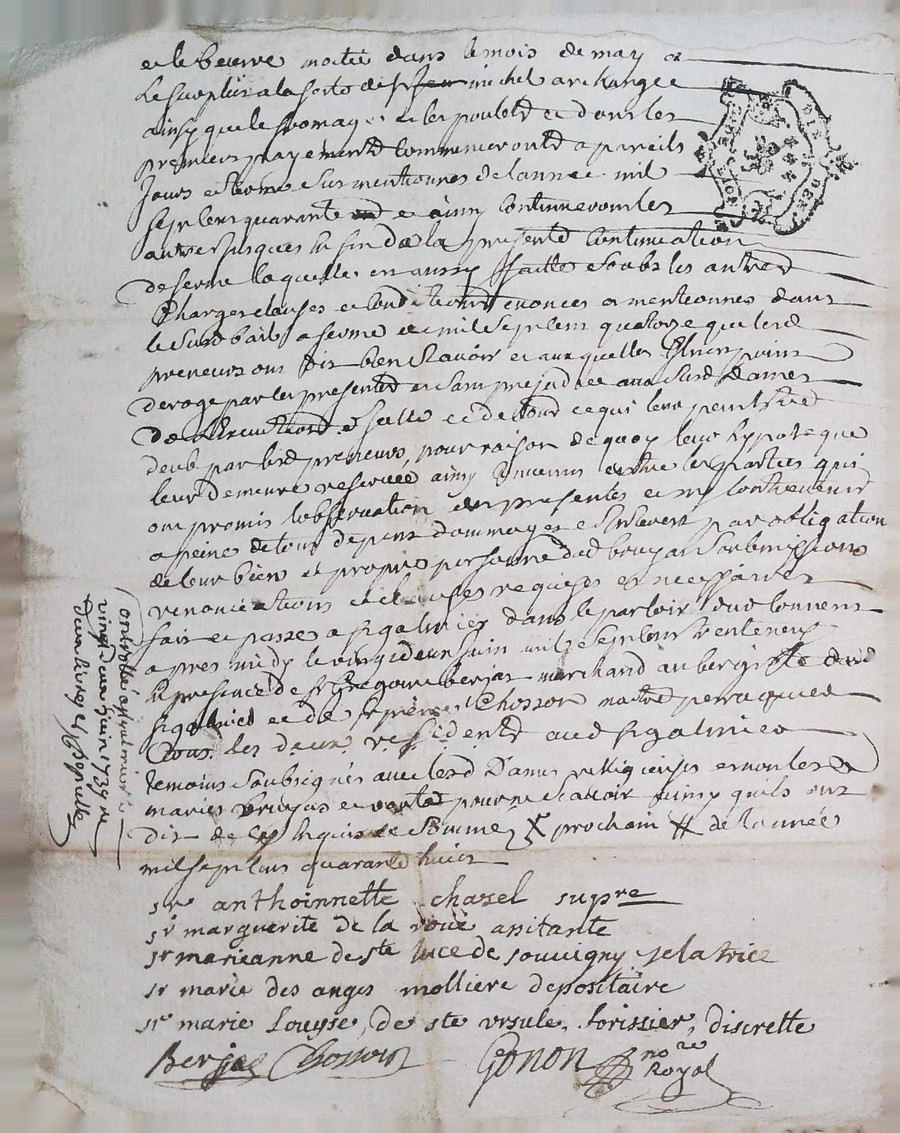 et le beurre moitié dans le mois de may et
Le surplus a la feste de st michel archange
ainsy que le fromage et les poulets et dont les
premiers payements commenceront a pareils
Jours et terme sus mentionnes de lannee mil
sept cens quarante et ainsy continueront les
autres jusques la fin de la presente continuation
de ferme laquelle en aussy faitte soubs les autres
Charges clauses et conditions enonces et mentionnes dans
le susd bail a ferme de mil sept cens quatorze que lesd
preneurs ont dit bien scavoir et auxquelles Il nest point
deroge par les presentes et sans prejudice aux susd Dames
de et de tout ce qui leur peut estre
deub par lesd preneurs, pour raison de quoy leur hypoteque
leur demeure reservée ainsy convenu entre les parties qui
ont promis lobservation des presentes et ny contrevenir
a peine de tous depens dommages et interets par obligation
de leur bien et propre personne dud bouyas soubmissions
renonciations et clauses requises et necessaires
fait et passé a st galmier dans le parloir dud couvent
apres midy le vingt deux juin mil sept cens trente neuf
En presence de sr Gregoire berjat marchand aubergiste dud
st galmier et de sr pierre Chosson maitre perruquier
tous les deux residents aud st galmier
temoins soubsignés avec lesd Dames religieuses et non les
mariés bouyas et pour ne scavoir ainsy quils ont
dit de ce enquis et sommés X prochain # de lannée
mil sept cens quarante huit
sr anthoinnette chazel supre
sr marguerite de la roüe assitante
sr marieanne de ste luce de souvigny selatrice
sr marie des anges molliere depositaire
sr marie Louyse, de ste ursule, forissier, discrette
Berjat Chosson Gonon nore
Royal
Controllé a st galmier le
vingt deux juin 1739 Re